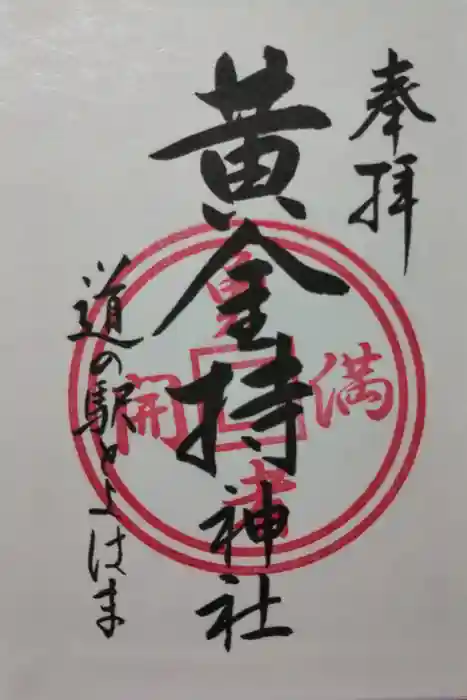 奉拝
黄金持神社
道の駅とよはま
満
開